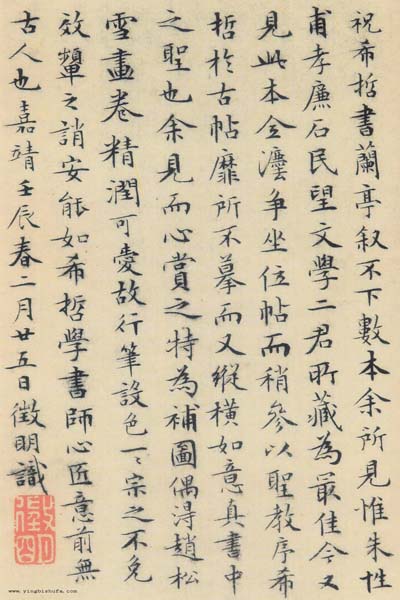 祝希哲書蘭亭叙不下數本余所見惟朱性
甫孝廉石民望文學二君所藏為最佳今又
見此本全灋争坐位帖而稍參以聖教序希
哲於古帖靡所不摹而又縱橫如意真書中
之聖也余見而心賞之特為補圖偶淂趙松
雪畫卷精潤可愛故行筆設色一〻宗之不免
效顰之誚安能如希哲學書師心匠意前無
古人也嘉靖壬辰春二月廿五日徵明識
www.yingbishufa.com